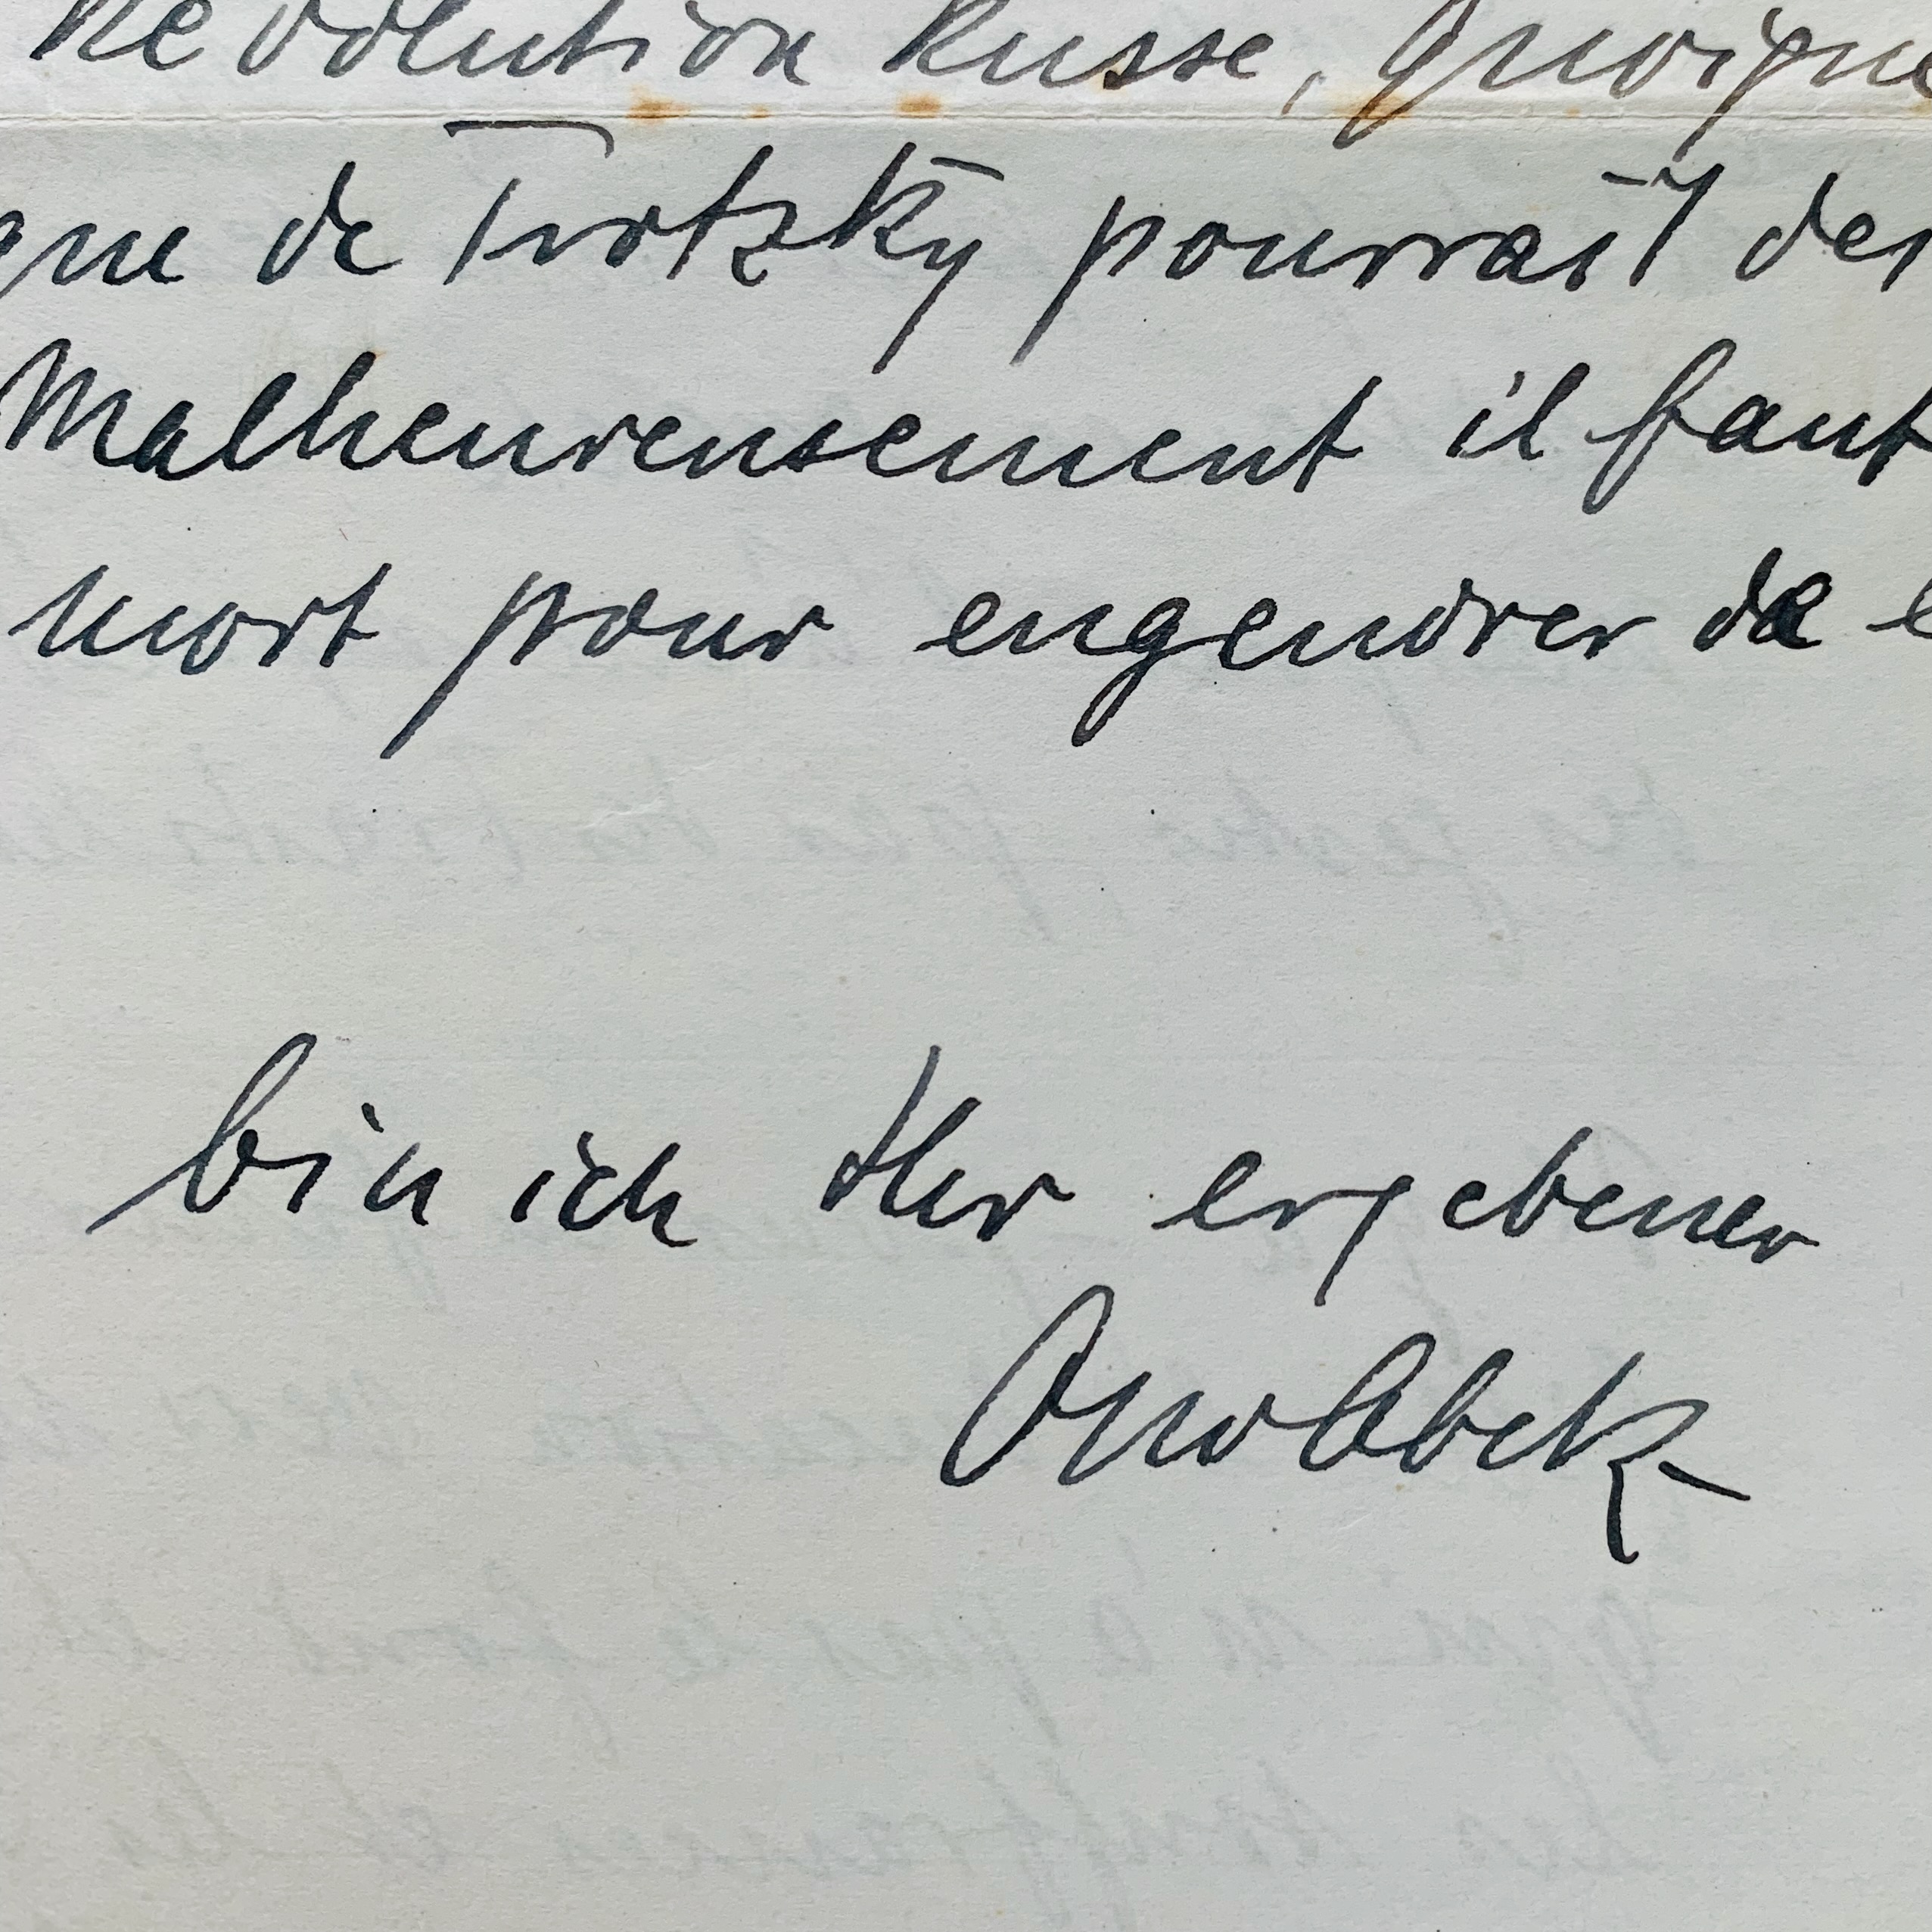 Révolution Russe, Quoique
que de Trotzky pourrait de
Malheureusement il faut
mort pour engendrer de
bin ich Ihr ergebener